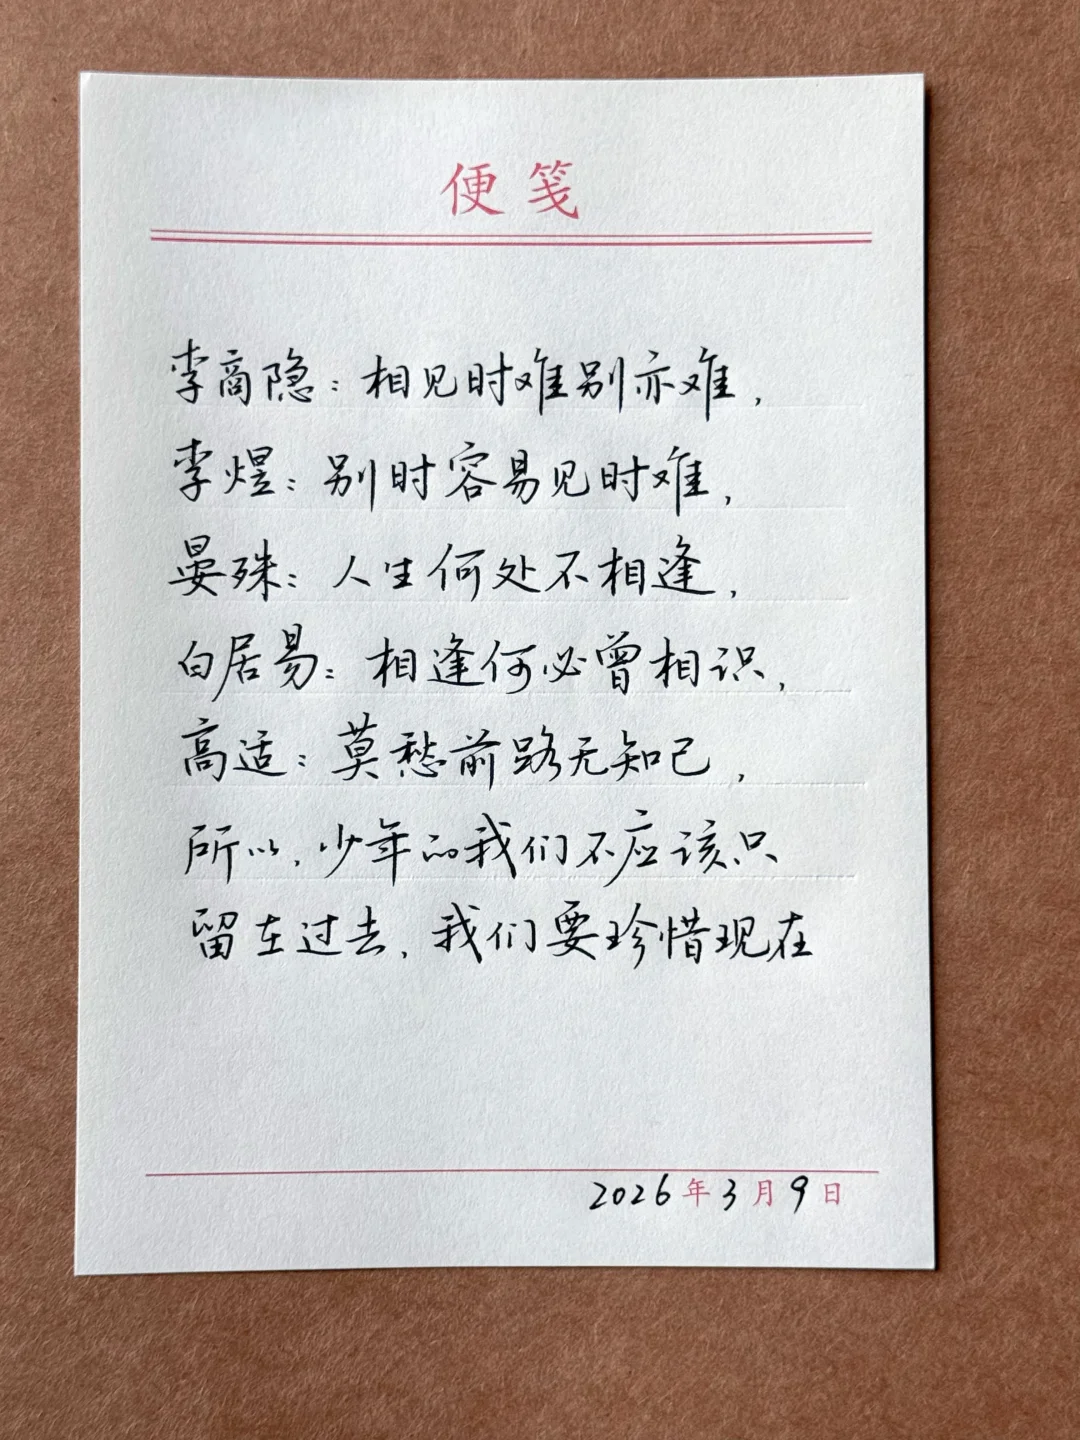 便笺
李商隐：相见时难别亦难，
李煜：别时容易见时难，
晏殊：人生何处不相逢，
白居易：相逢何必曾相识，
高适：莫愁前路无知己，
所以，少年的我们不应该只
留在过去，我们要珍惜现在
2026年3月9日